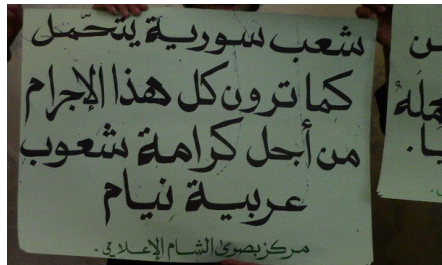 شعب سورية يتحمّل
كما ترون كل هذا الإجرام
من أجل كرامة شعوب
عربية نيام
مركز بصرى الشام الإعلامي.